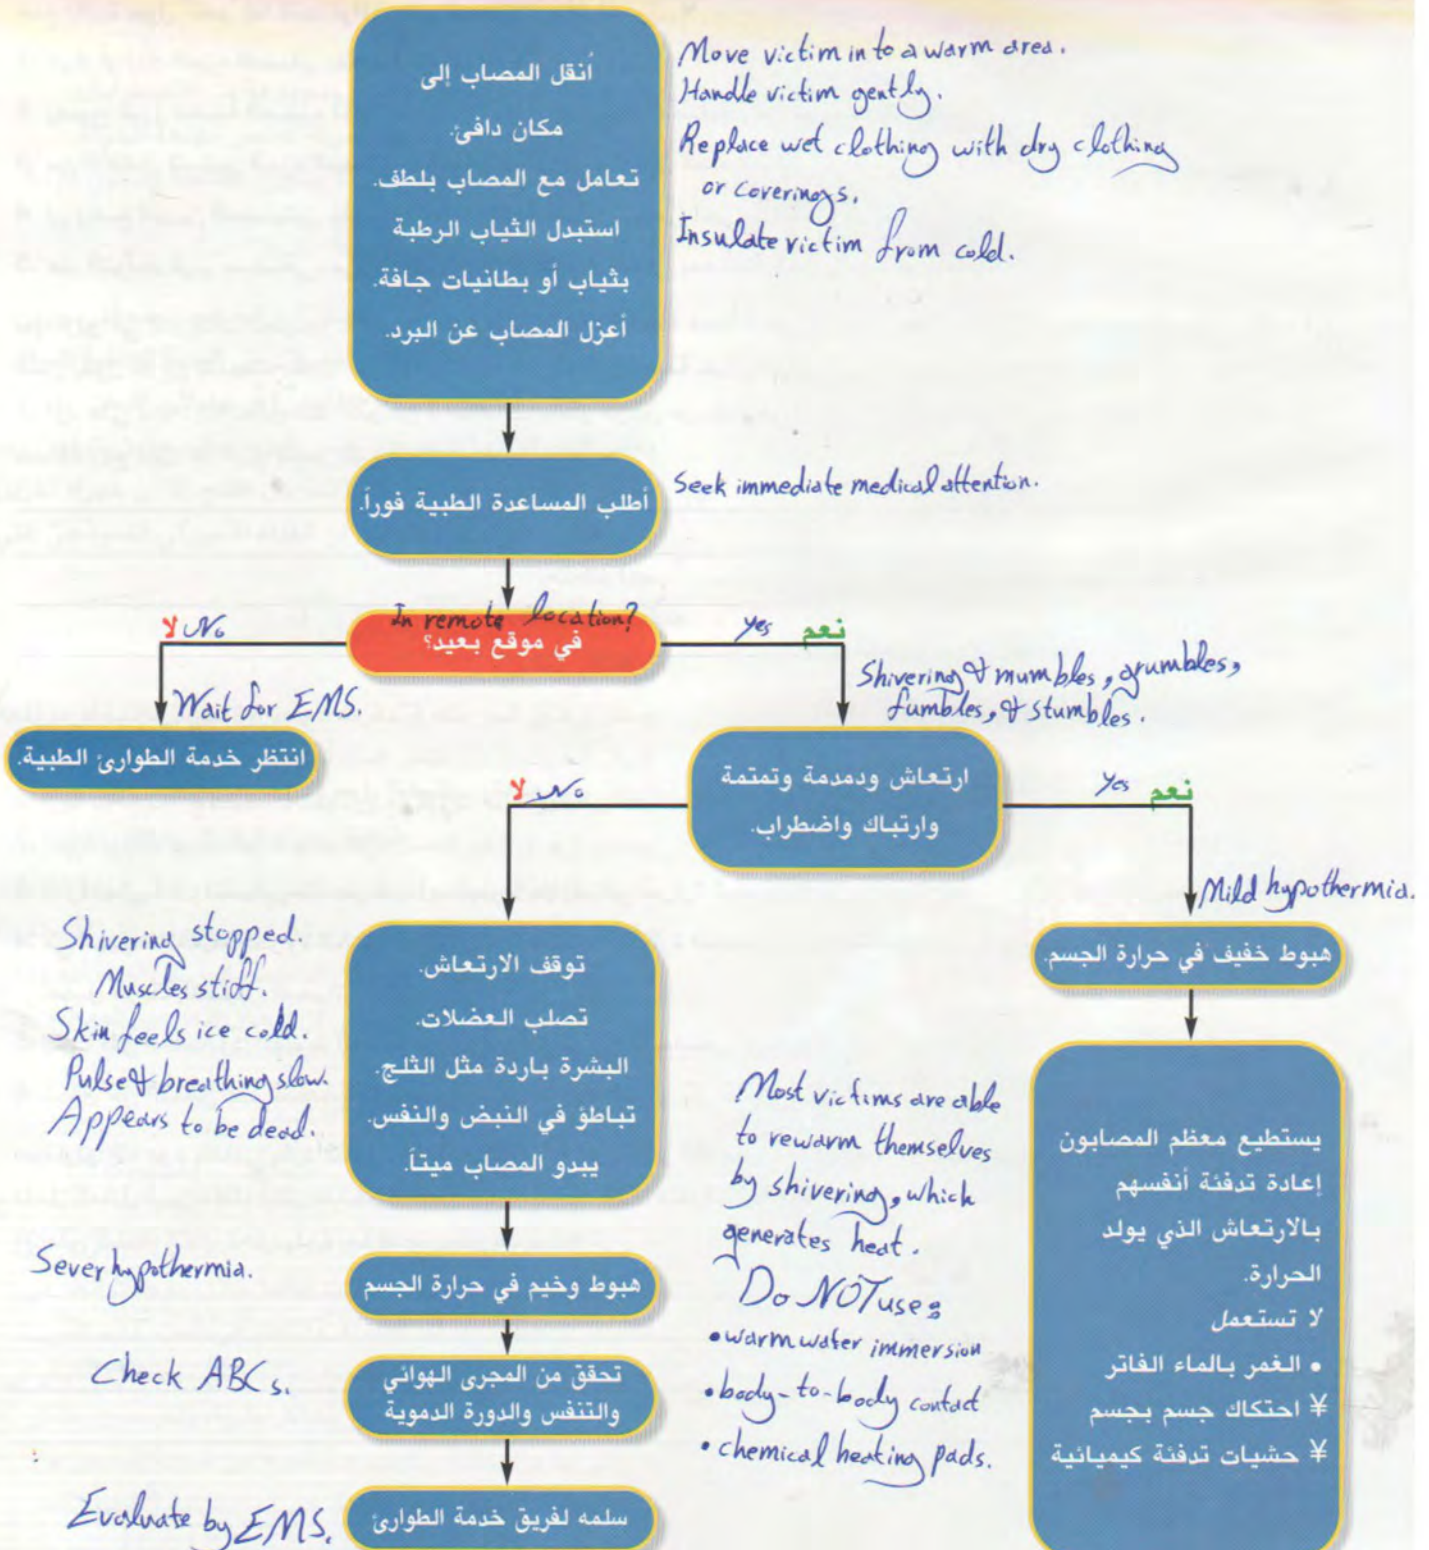 أنقل المصاب إلى
مكان دافئ.
تعامل مع المصاب بلطف.
استبدل الثياب الرطبة
بثياب أو بطانيات جافة.
أعزل المصاب عن البرد.
Move victim in to a warm area.
Handle victim gently.
Replace wet clothing with dry clothing
or coverings.
Insulate victim from cold.
أطلب المساعدة الطبية فوراً.
Seek immediate medical attention.
In remote location?
في موقع بعيد؟
لا No
Yes نعم
Wait for EMS.
انتظر خدمة الطوارئ الطبية.
Shivering & mumbles, grumbles,
fumbles, & stumbles.
ارتعاش ودمدمة وتمتمة
وارتباك واضطراب.
لا No
Yes نعم
Mild hypothermia.
هبوط خفيف في حرارة الجسم.
Shivering stopped.
Muscles stiff.
Skin feels ice cold.
Pulse & breathing slow.
Appears to be dead.
توقف الارتعاش.
تصلب العضلات.
البشرة باردة مثل الثلج.
تباطؤ في النبض والنفس.
يبدو المصاب ميتاً.
Most victims are able
to rewarm themselves
by shivering, which
generates heat.
Do NOT use:
• warm water immersion
• body-to-body contact
• chemical heating pads.
يستطيع معظم المصابون
إعادة تدفئة أنفسهم
بالارتعاش الذي يولد
الحرارة.
لا تستعمل
• الغمر بالماء الفاتر
¥ احتكاك جسم بجسم
¥ حشيات تدفئة كيميائية
Sever hypothermia.
هبوط وخيم في حرارة الجسم
Check ABCs.
تحقق من المجرى الهوائي
والتنفس والدورة الدموية
Evaluate by EMS.
سلمه لفريق خدمة الطوارئ